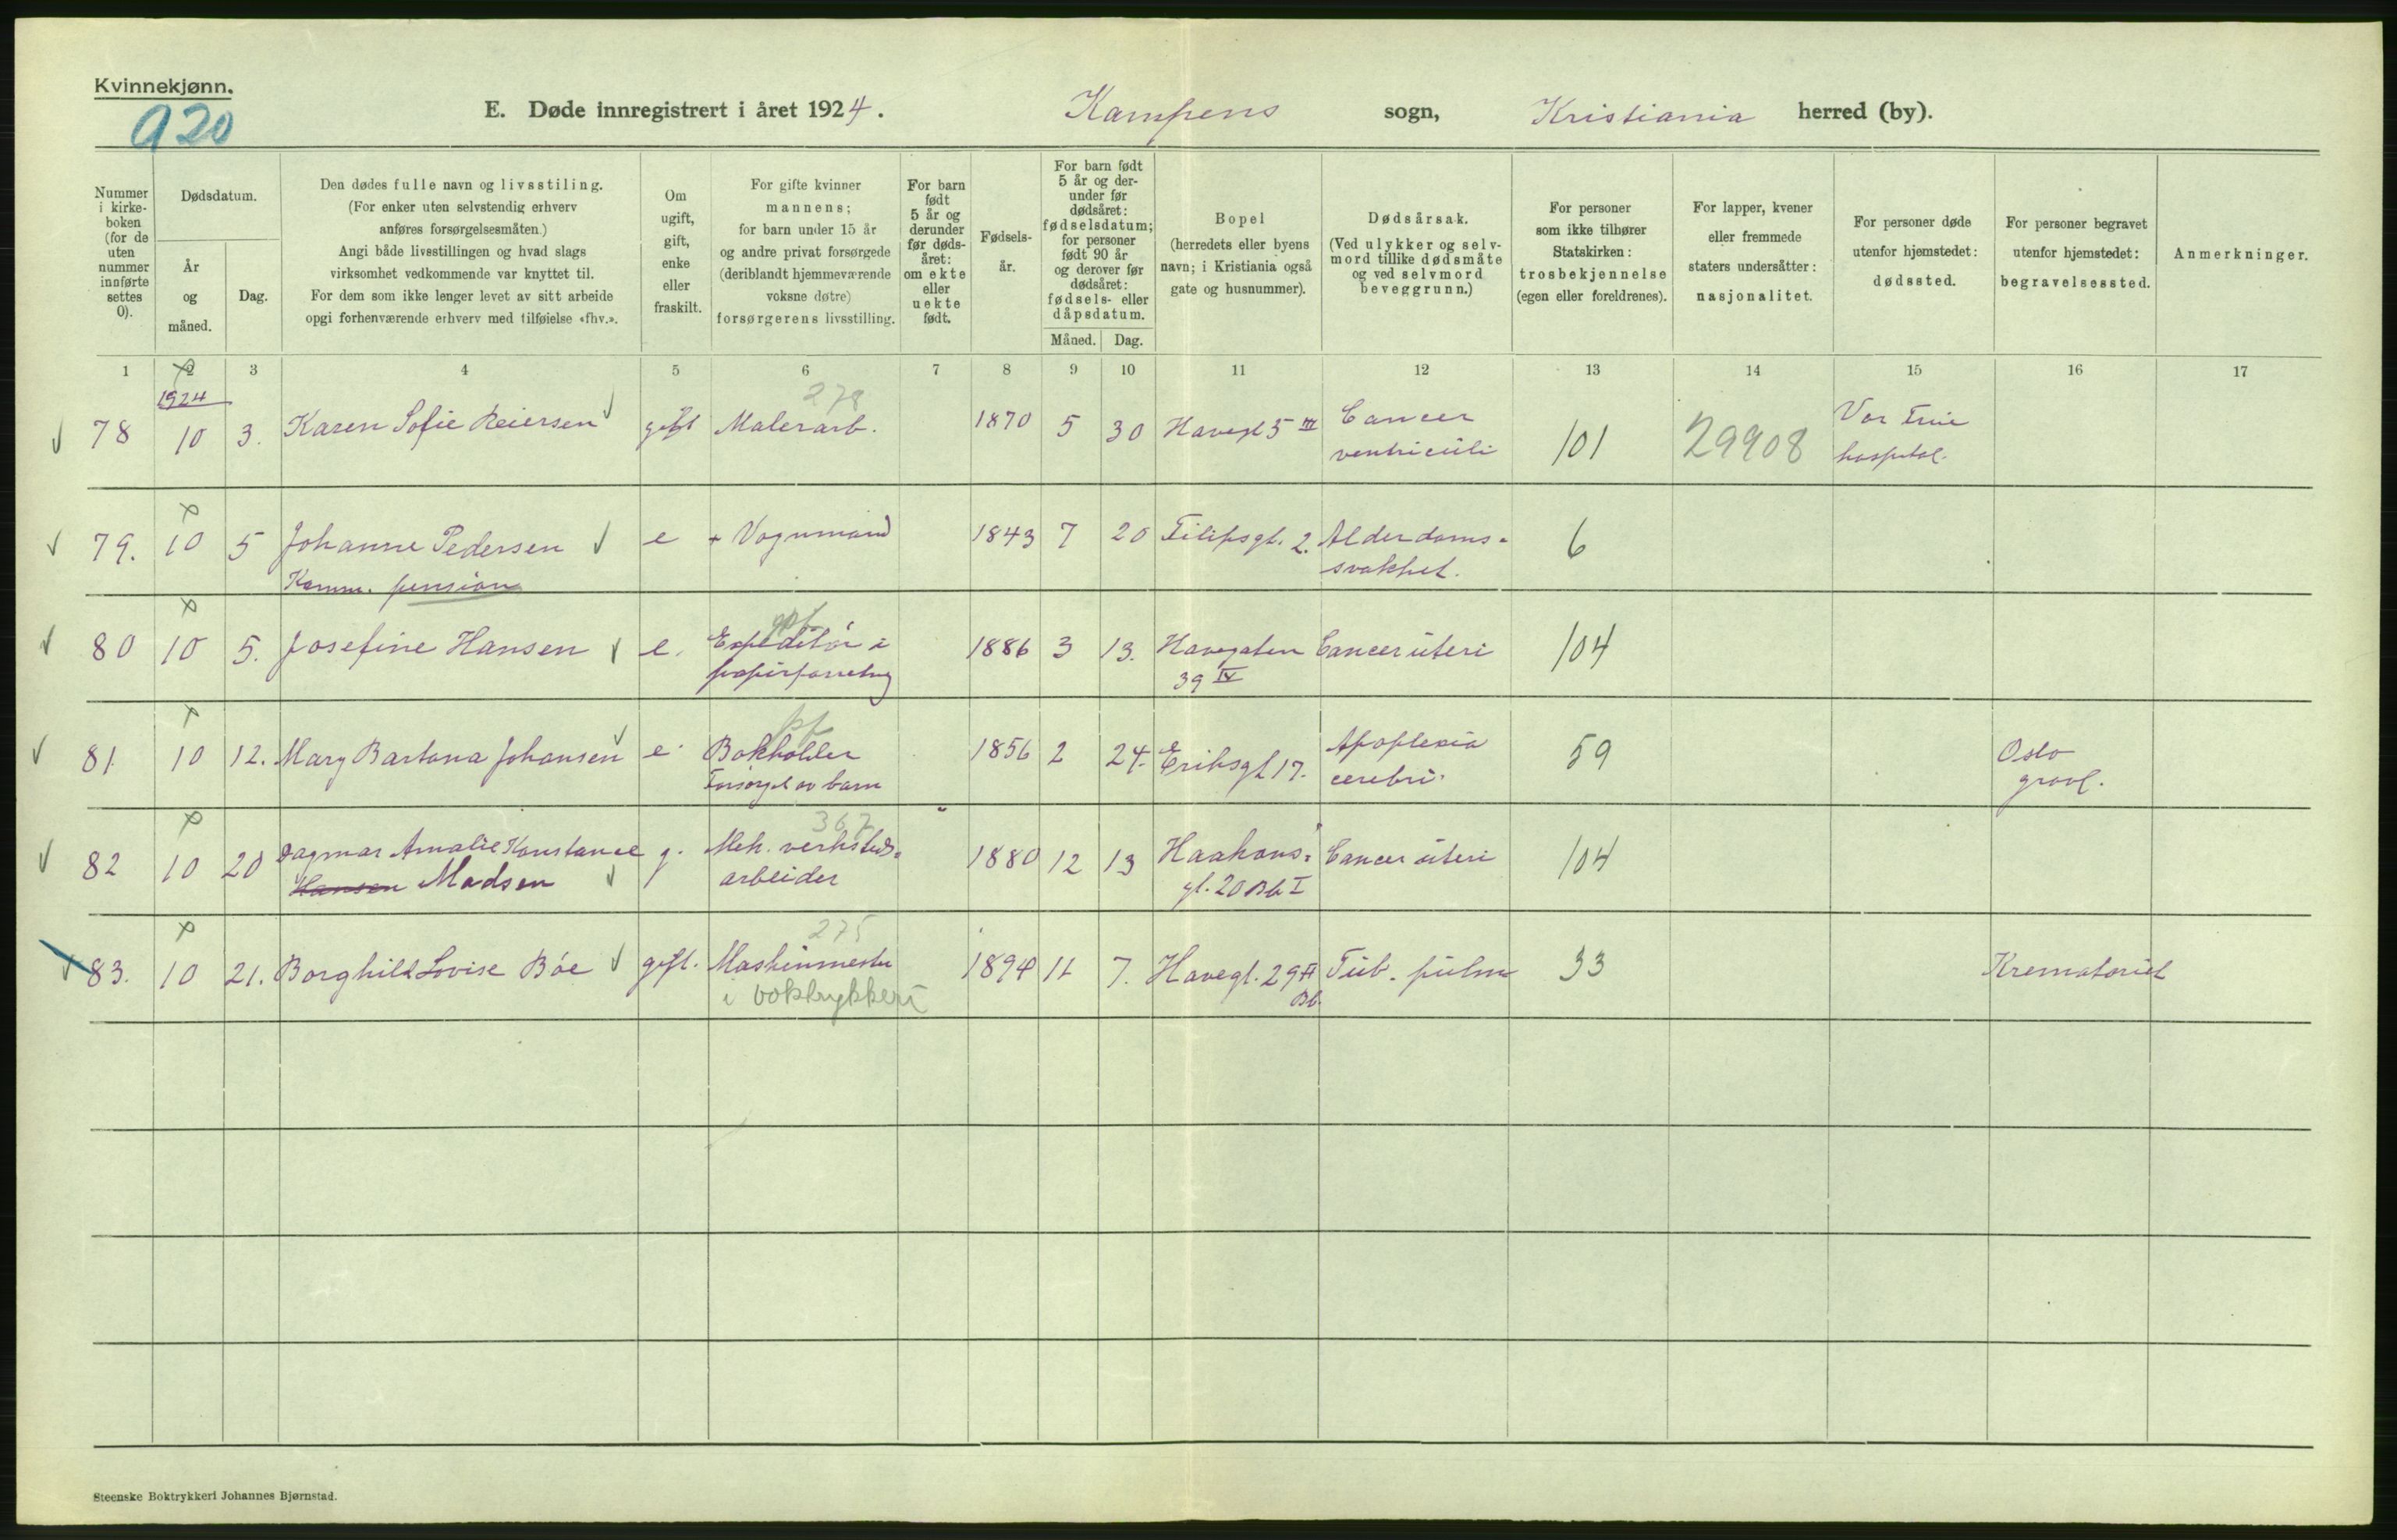 Kvinnekjønn.
a20
E. Døde innregistrert i året 1924. Kampens sogn, Kristiania herred (by).
Nummer i kirke-boken (for de uten nummer innførte settes 0).
Dødsdatum.
År og måned.
Dag.
Den dødes fulle navn og livsstiling.
(For enker uten selvstendig erhverv
anføres forsørgelsesmåten.)
Angi både livsstillingen og hvad slags
virksomhet vedkommende var knyttet til.
For dem som ikke lenger levet av sitt arbeide
opgi forhenværende erhverv med tilføielse «fhv.».
Om ugift, gift, enke eller fraskilt.
For gifte kvinner
mannens;
for barn under 15 år
og andre privat forsørgede
(deriblandt hjemmeværende
voksne døtre)
forsørgerens livsstilling.
For barn født 5 år og derunder før døds-året: om ekte eller uekte født.
Fødsels-år.
For barn født 5 år og der-under før dødsåret: fødselsdatum; for personer født 90 år og derover før dødsåret: fødsels- eller dåpsdatum.
Måned. Dag.
Bopel
(herredets eller byens
navn; i Kristiania også
gate og husnummer).
Dødsårsak.
(Ved ulykker og selv-
mord tillike dødsmåte
og ved selvmord
beveggrunn.)
For personer
som ikke tilhører
Statskirken:
trosbekjennelse
(egen eller foreldrenes).
For lapper, kvener
eller fremmede
staters undersåtter:
nasjonalitet.
For personer døde
utenfor hjemstedet:
dødssted.
For personer begravet
utenfor hjemstedet:
begravelsessted.
Anmerkninger.
1 2 3 4 5 6 7 8 9 10 11 12 13 14 15 16 17
1924 278
78 10 3. Karen Sofie Reiersen gift Malerarb. 1870 5 30 Havegt 5 III Cancer ventriculi 101 29908 Vor Frue hospital.
79. 10 5 Johanne Pedersen e + Vognmand 1843 7 20 Filipsgt. 2. Alderdoms-
Komm. pension svakhet. 6
80 10 5. Josefine Hansen e. Expeditør i 1886 3 13. Havegaten Cancer uteri 104
papirforretng 39 IV
81. 10 12. Mary Bartona Johansen e. Bokholder 1856 2 24. Eriksgt 17. Apoplexia 59 Oslo
Forsørget av barn cerebri. gravl.
367
82 10 20 Dagmar Amalie Konstance g. Mek. verksteds- 1880 12 13 Haakons- Cancer uteri 104
Hansen Madsen arbeider gt. 20 Bb I
275
83. 10 21. Borghild Lovise Bøe gift. Maskinmester 1894 11 7. Havegt. 29 II Tub. pulm 33 Krematoriet
i boktrykkeri Bb.
Steenske Boktrykkeri Johannes Bjørnstad.